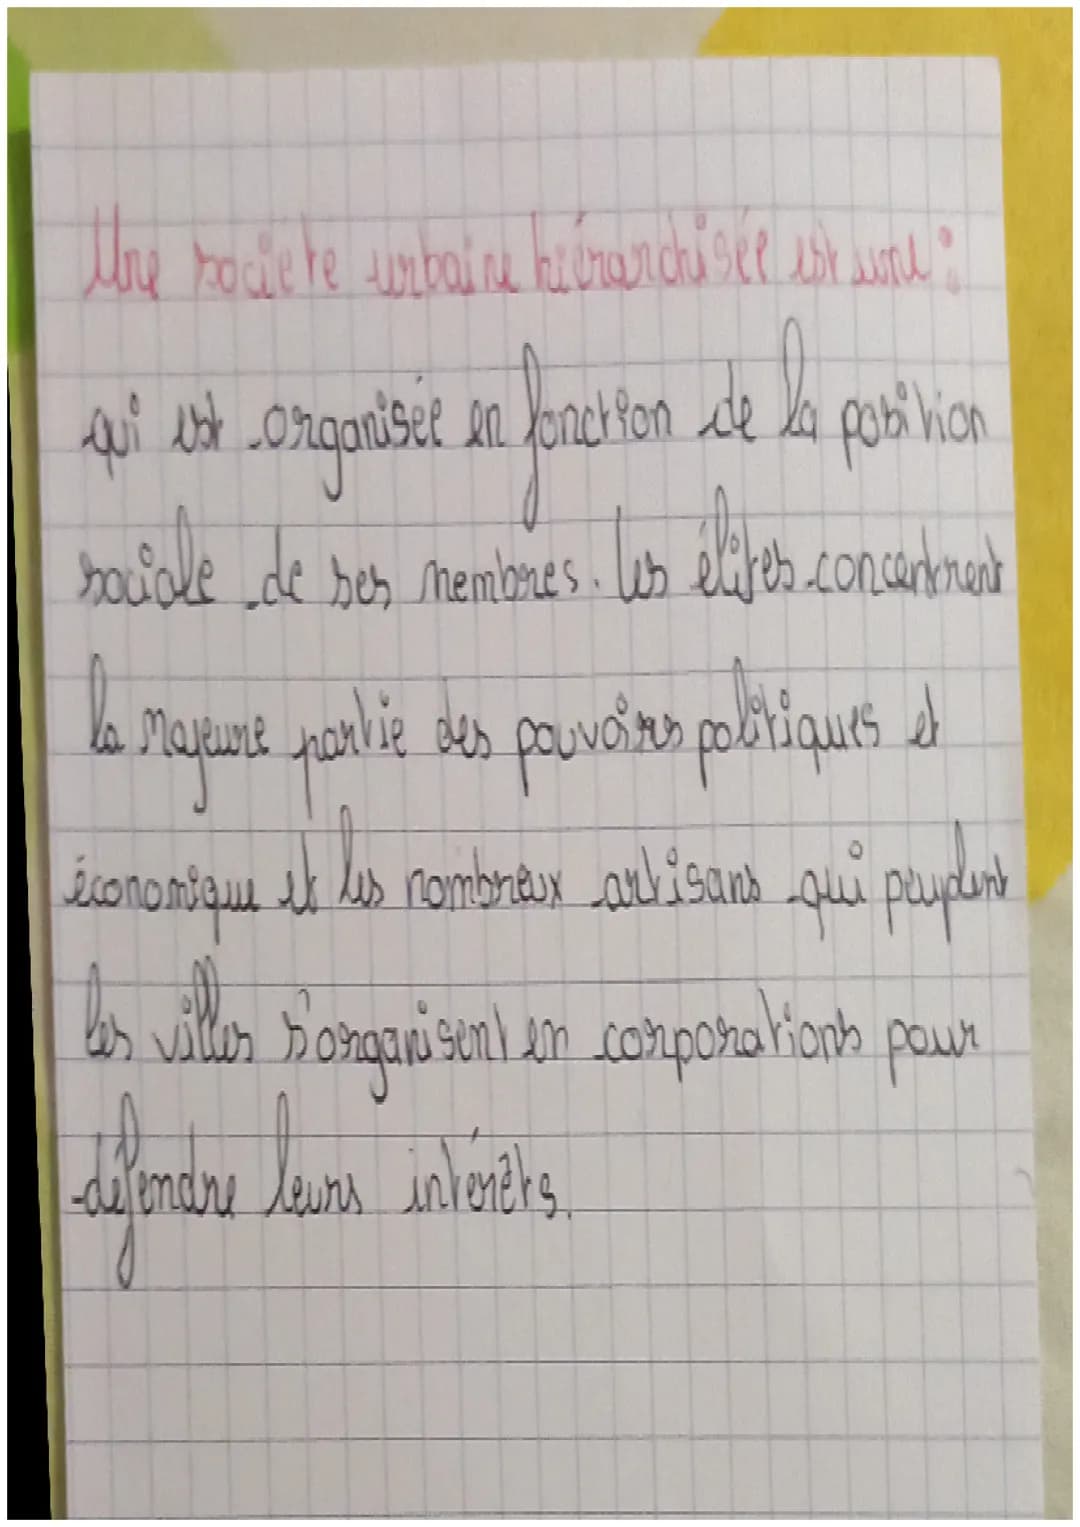 Une societe urbaine hiérarchisée est une :
qui est organisée en fonction de la position
sociale de ses membres. les élites concentrent
la majeure partie des pouvoirs politiques et
économique et les nombreux artisans qui peuplent
les villes s'organisent en corporations pour
défendre leurs intérêts.